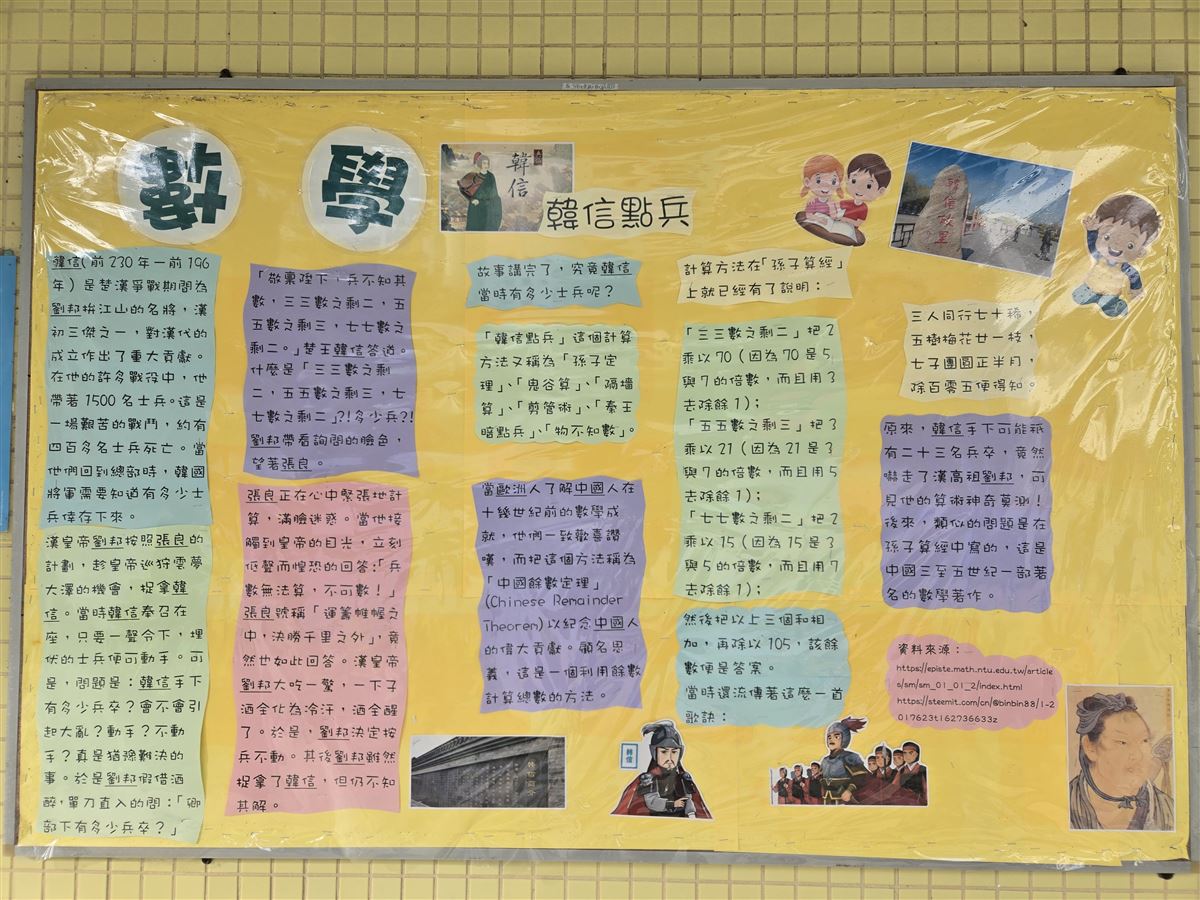 數學
韓信
韓信點兵
韓信故里
韓信(前230年一前196
年)是楚漢爭戰期間為
劉邦拚江山的名將,漢
初三傑之一,對漢代的
成立作出了重大貢獻。
在他的許多戰役中,他
帶著1500名士兵。這是
一場艱苦的戰鬥,約有
四百多名士兵死亡。當
他們回到總部時,韓國
將軍需要知道有多少士
兵倖存下來。
漢皇帝劉邦按照張良的
計劃,趁皇帝巡狩雲夢
大澤的機會,捉拿韓
信。當時韓信奉召在
座,只要一聲令下,埋
伏的士兵便可動手。可
是,問題是:韓信手下
有多少兵卒?會不會引
起大亂?動手?不動
手?真是猶豫難決的
事。於是劉邦假借酒
醉,單刀直入的問:「卿
部下有多少兵卒?」
「敬稟陛下,兵不知其
數,三三數之剩二,五
五數之剩三,七七數之
剩二。」楚王韓信答道。
什麼是「三三數之剩
二,五五數之剩三,七
七數之剩二」?!多少兵?!
劉邦帶看詢問的臉色,
望著張良。
張良正在心中緊張地計
算,滿臉迷惑。當他接
觸到皇帝的目光,立刻
低聲而惶恐的回答:「兵
數無法算,不可數!」
張良號稱「運籌帷幄之
中,決勝千里之外」,竟
然也如此回答。漢皇帝
劉邦大吃一驚,一下子
酒全化為冷汗,酒全醒
了。於是,劉邦決定按
兵不動。其後劉邦雖然
捉拿了韓信,但仍不知
其解。
故事講完了,究竟韓信
當時有多少士兵呢?
「韓信點兵」這個計算
方法又稱為「孫子定
理」、「鬼谷算」、「隔墻
算」、「剪管術」、「秦王
暗點兵」、「物不知數」。
當歐洲人了解中國人在
十幾世紀前的數學成
就,他們一致歡喜讚
嘆,而把這個方法稱為
「中國餘數定理」
(Chinese Remainder
Theoren)以紀念中國人
的偉大貢獻。顧名思
義,這是一個利用餘數
計算總數的方法。
計算方法在「孫子算經」
上就已經有了說明:
「三三數之剩二」把2
乘以70(因為70是5
與7的倍數,而且用3
去除餘1);
「五五數之剩三」把3
乘以21(因為21是3
與7的倍數,而且用5
去除餘1);
「七七數之剩二」把2
乘以15(因為15是3
與5的倍數,而且用7
去除餘1);
然後把以上三個和相
加,再除以105,該餘
數便是答案。
當時還流傳著這麼一首
歌訣:
三人同行七十稀,
五樹梅花廿一枝,
七子團圓正半月,
除百零五便得知。
原來,韓信手下可能祇
有二十三名兵卒,竟然
嚇走了漢高祖劉邦,可
見他的算術神奇莫測!
後來,類似的問題是在
孫子算經中寫的,這是
中國三至五世紀一部著
名的數學著作。
資料來源:
https://episte.math.ntu.edu.tw/article
s/sm/sm_01_01_2/index.html
https://steemit.com/cn/@binbin88/1-2
017623t162736633z
韓信